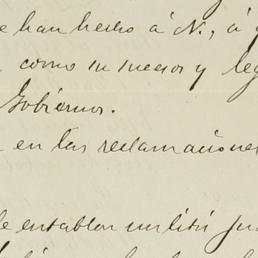 e han hecho á N., á
como su suesor y leg
Gobierno.
en las reclamaciones
de entablar un litis ju